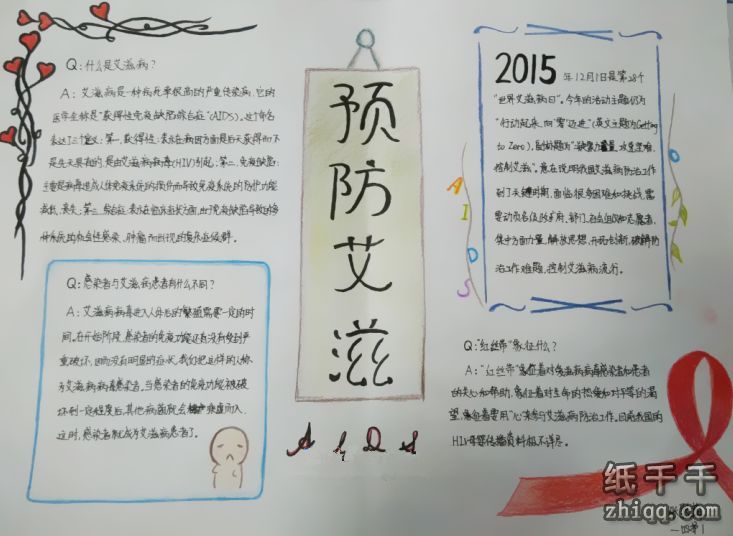 Q:什么是艾滋病?
A:艾滋病是一种病死率很高的严重传染病,它的
医学全称是"获得性免疫缺陷综合征"(AIDS)。这个命名
表达了三个定义:第一,获得性:表示在病因方面是后天获得而不
是先天具有的,是由艾滋病病毒(HIV)引起;第二,免疫缺陷:
主要是病毒造成人体免疫系统的损伤而导致免疫系统的防护功能
减低、丧失;第三,综合征:表示在临床症状方面,由于免疫缺陷导致的多
种系统的机会性感染、肿瘤而出现的复杂症候群。
Q:感染者与艾滋病患者有什么不同?
A:艾滋病病毒进入人体后的繁殖需要一定的时
间。在开始阶段,感染者的免疫功能还没有受到严
重破坏,因而没有明显的症状,我们把这样的人称
为艾滋病病毒感染者。当感染者的免疫功能被破
坏到一定程度后,其他病菌就会乘虚而入,
这时,感染者就成为艾滋病患者了。
预
防
艾
滋
AIDS
2015年12月1日是第28个
"世界艾滋病日"。今年的活动主题仍为
"行动起来,向'零'迈进"(英文主题为Getting
to Zero),副标题为"凝聚力量,攻坚克难,
控制艾滋"。意在说明我国艾滋病防治工作
到了关键时期,面临很多困难和挑战,需
要动员各级政府、部门、社会组织和志愿者,
集中方面力量,解放思想,开拓创新,破解防
治工作难题,控制艾滋病流行。
AIDS
Q:"红丝带"象征什么?
A:"红丝带"象征着对艾滋病病毒感染者和患者
的关心和帮助,象征着对生命的热爱和对平等的渴
望,象征着要用"心"来参与艾滋病防治工作。目前我国的
HIV母婴传播资料报不详尽。
纸千千
zhiqq.com